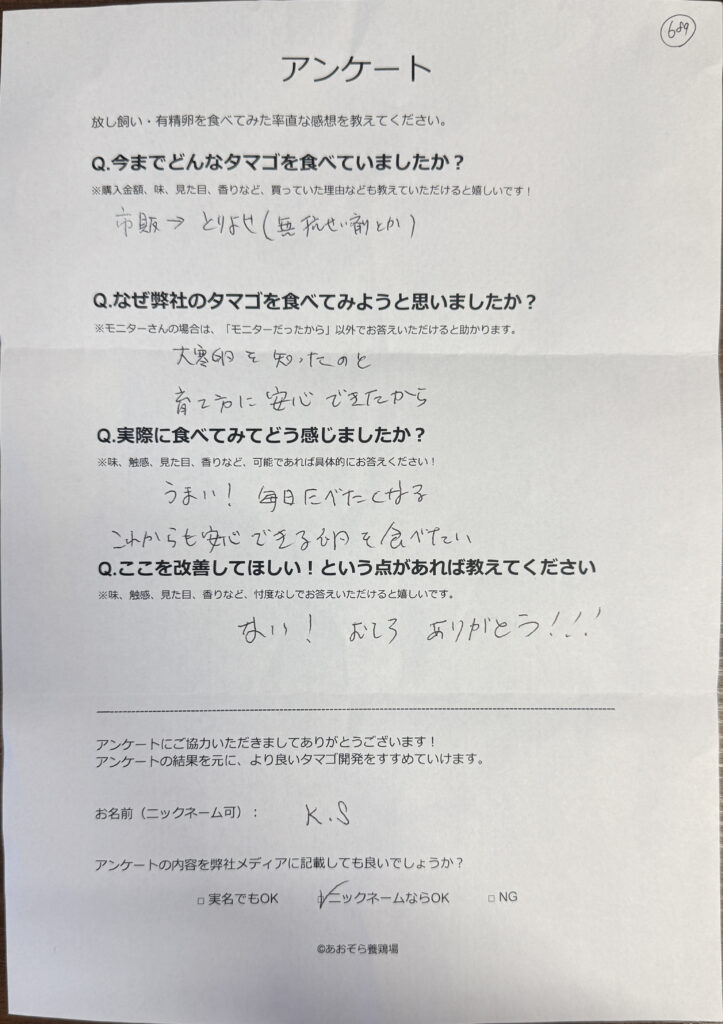 689
アンケート
放し飼い・有精卵を食べてみた率直な感想を教えてください。
Q.今までどんなタマゴを食べていましたか？
※購入金額、味、見た目、香りなど、買っていた理由なども教えていただけると嬉しいです！
市販→とりよせ(無抗せい剤とか)
Q.なぜ弊社のタマゴを食べてみようと思いましたか？
※モニターさんの場合は、「モニターだったから」以外でお答えいただけると助かります。
大寒卵を知ったのと
育て方に安心できたから
Q.実際に食べてみてどう感じましたか？
※味、触感、見た目、香りなど、可能であれば具体的にお答えください！
うまい！ 毎日たべたくなる
これからも安心できる卵を食べたい
Q.ここを改善してほしい！という点があれば教えてください
※味、触感、見た目、香りなど、忖度なしでお答えいただけると嬉しいです。
ない！ むしろ ありがとう！！！
アンケートにご協力いただきましてありがとうございます！
アンケートの結果を元に、より良いタマゴ開発をすすめていけます。
お名前（ニックネーム可）： K.S
アンケートの内容を弊社メディアに記載しても良いでしょうか？
□実名でもOK ☑ニックネームならOK □NG
©あおぞら養鶏場